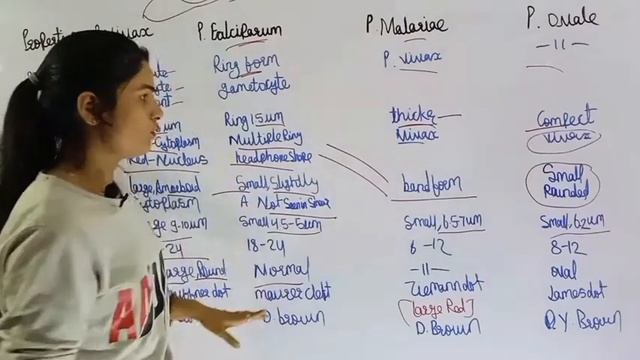 P. Falciparum P. Malariae P. Ovale
Ring form P. Vivax -11-
gametocyte
Ring 1.5 um thicke Compect
Cytoplasm Multiple Ring Vivax Vivax
Red-Nucleus headphone Shape
Large, Amoeboid Small Slightly band form Small
Cytoplasm A Not Seen in Smear Rounded
9-10um Small 4.5-5um Small, 6.5-7um Small, 6.2um
24 18-24 6-12 8-12
Large Round Normal -11- oval
dot maurer cleft Ziemann dot James dot
[large Rod]
D. brown D. Brown D. Y. Brown
AD